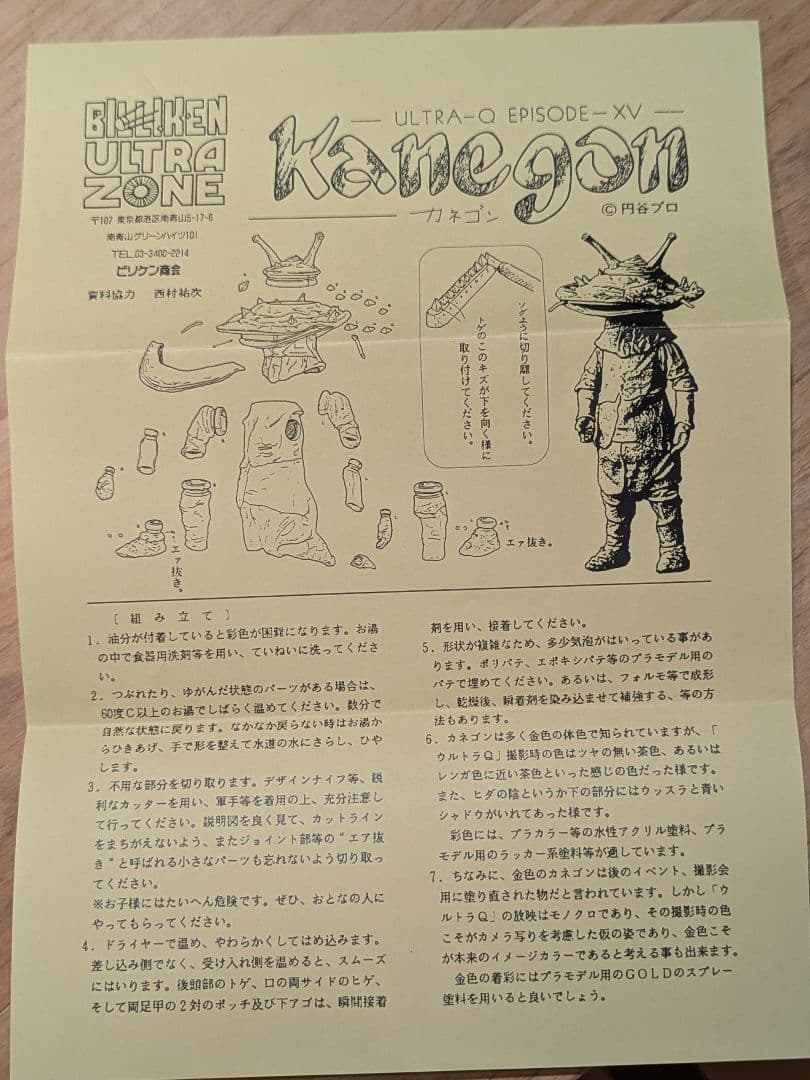 BILLIKEN
ULTRA
ZONE
〒107 東京都港区南青山5-17-6
南青山グリーンハイツ101
TEL.03-3400-2214
ビリケン商会
資料協力 西村祐次
ULTRA-Q EPISODE-XV
Kanegon
カネゴン
©円谷プロ
ソグように切り離してください。
トゲのこのキズが下を向く様に
取り付けてください。
エァ抜き。
エァ抜き。
〔組み立て〕
1．油分が付着していると彩色が困難になります。お湯
の中で食器用洗剤等を用い、ていねいに洗ってくださ
い。
2．つぶれたり、ゆがんだ状態のパーツがある場合は、
60度C以上のお湯でしばらく温めてください。数分で
自然な状態に戻ります。なかなか戻らない時はお湯か
らひきあげ、手で形を整えて水道の水にさらし、ひや
します。
3．不用な部分を切り取ります。デザインナイフ等、鋭
利なカッターを用い、軍手等を着用の上、充分注意し
て行ってください。説明図を良く見て、カットライン
をまちがえないよう、またジョイント部等の“エア抜
き”と呼ばれる小さなパーツも忘れないよう切り取っ
てください。
※お子様にはたいへん危険です。ぜひ、おとなの人に
やってもらってください。
4．ドライヤーで温め、やわらかくしてはめ込みます。
差し込み側でなく、受け入れ側を温めると、スムーズ
にはいります。後頭部のトゲ、口の両サイドのヒゲ、
そして両足甲の2対のポッチ及び下アゴは、瞬間接着
剤を用い、接着してください。
5．形状が複雑なため、多少気泡がはいっている事があ
ります。ポリパテ、エポキシパテ等のプラモデル用の
パテで埋めてください。あるいは、フォルモ等で成形
し、乾燥後、瞬着剤を染み込ませて補強する、等の方
法もあります。
6．カネゴンは多く金色の体色で知られていますが、「
ウルトラQ」撮影時の色はツヤの無い茶色、あるいは
レンガ色に近い茶色といった感じの色だった様です。
また、ヒダの陰というか下の部分にはウッスラと青い
シャドウがいれてあった様です。
彩色には、プラカラー等の水性アクリル塗料、プラ
モデル用のラッカー系塗料等が適しています。
7．ちなみに、金色のカネゴンは後のイベント、撮影会
用に塗り直された物だと言われています。しかし「ウ
ルトラQ」の放映はモノクロであり、その撮影時の色
こそがカメラ写りを考慮した仮の姿であり、金色こそ
が本来のイメージカラーであると考える事も出来ます。
金色の着彩にはプラモデル用のGOLDのスプレー
塗料を用いると良いでしょう。